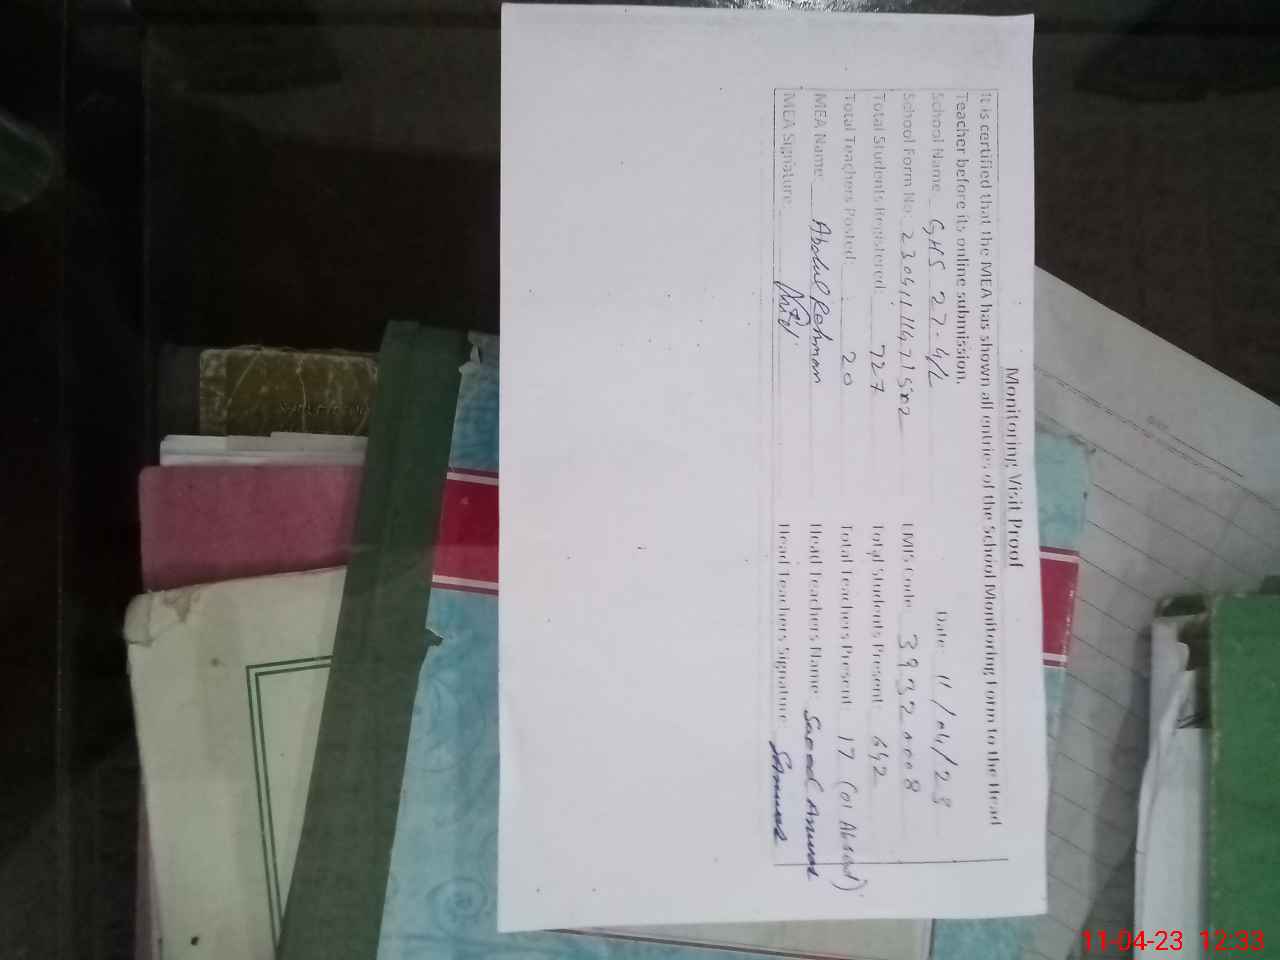 Monitoring Visit Proof
It is certified that the MEA has shown all entries of the School Monitoring Form to the Head
Teacher before its online submission.
School Name GHS 27-4/L Date: 11/04/23
School Form No: EMIS Code 39320008
Total Students Registered: 727 Total Students Present: 642
Total Teachers Posted: 20 Total Teachers Present: 17 (01 Absent)
MEA Name Abdul Rehman Head Teachers Name Saeed Anwar
MEA Signature: Head Teachers Signature:
11-04-23 12:33